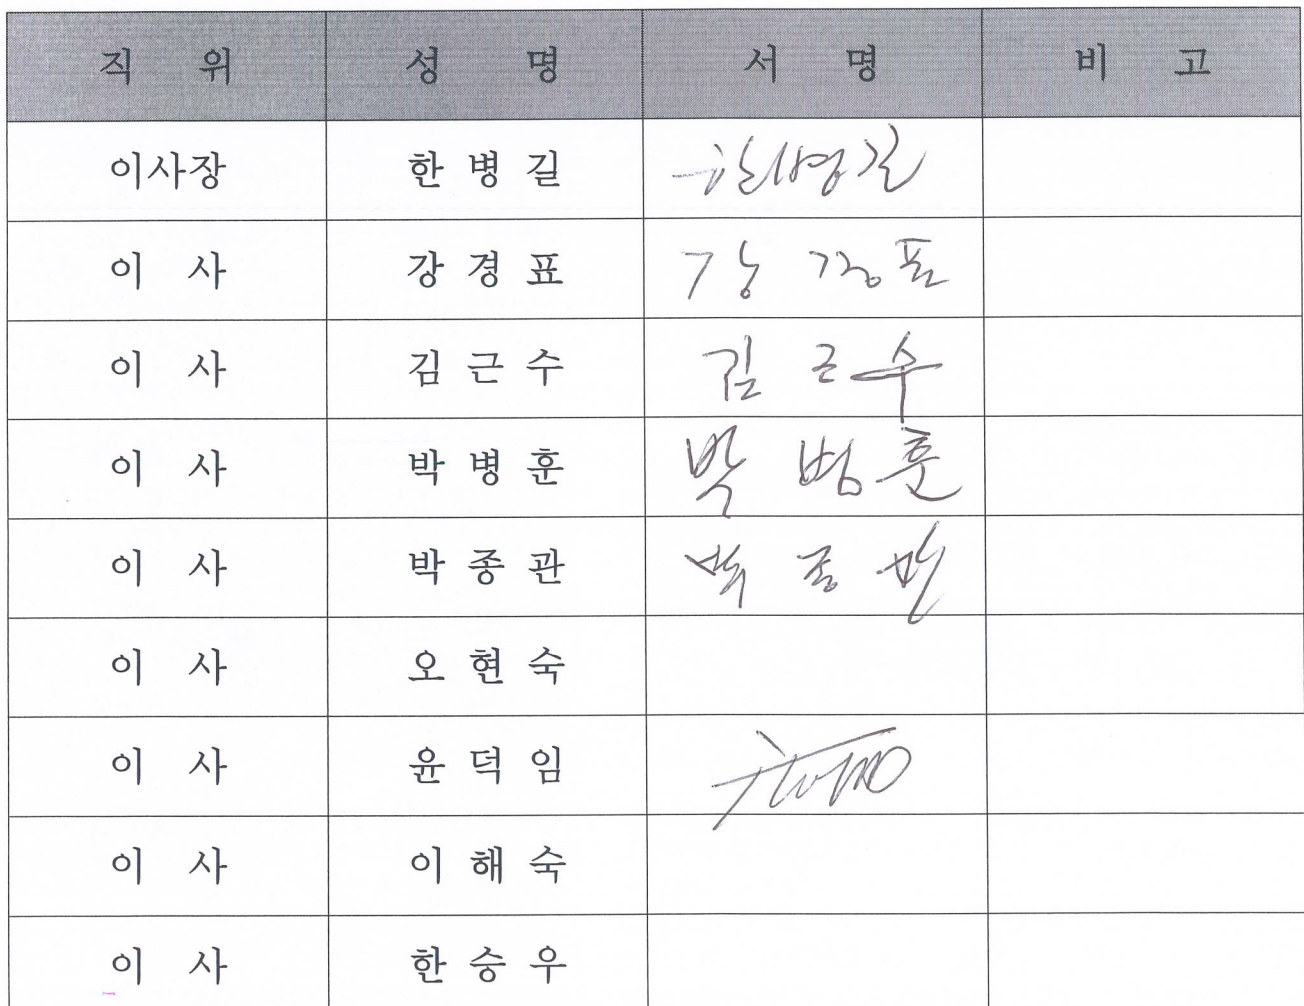 직 위 성 명 서 명 비 고
이사장 한 병 길 한병길
이 사 강 경 표 강 경 표
이 사 김 근 수 김 근 수
이 사 박 병 훈 박 병 훈
이 사 박 종 관 박 종 관
이 사 오 현 숙
이 사 윤 덕 임
이 사 이 해 숙
이 사 한 승 우